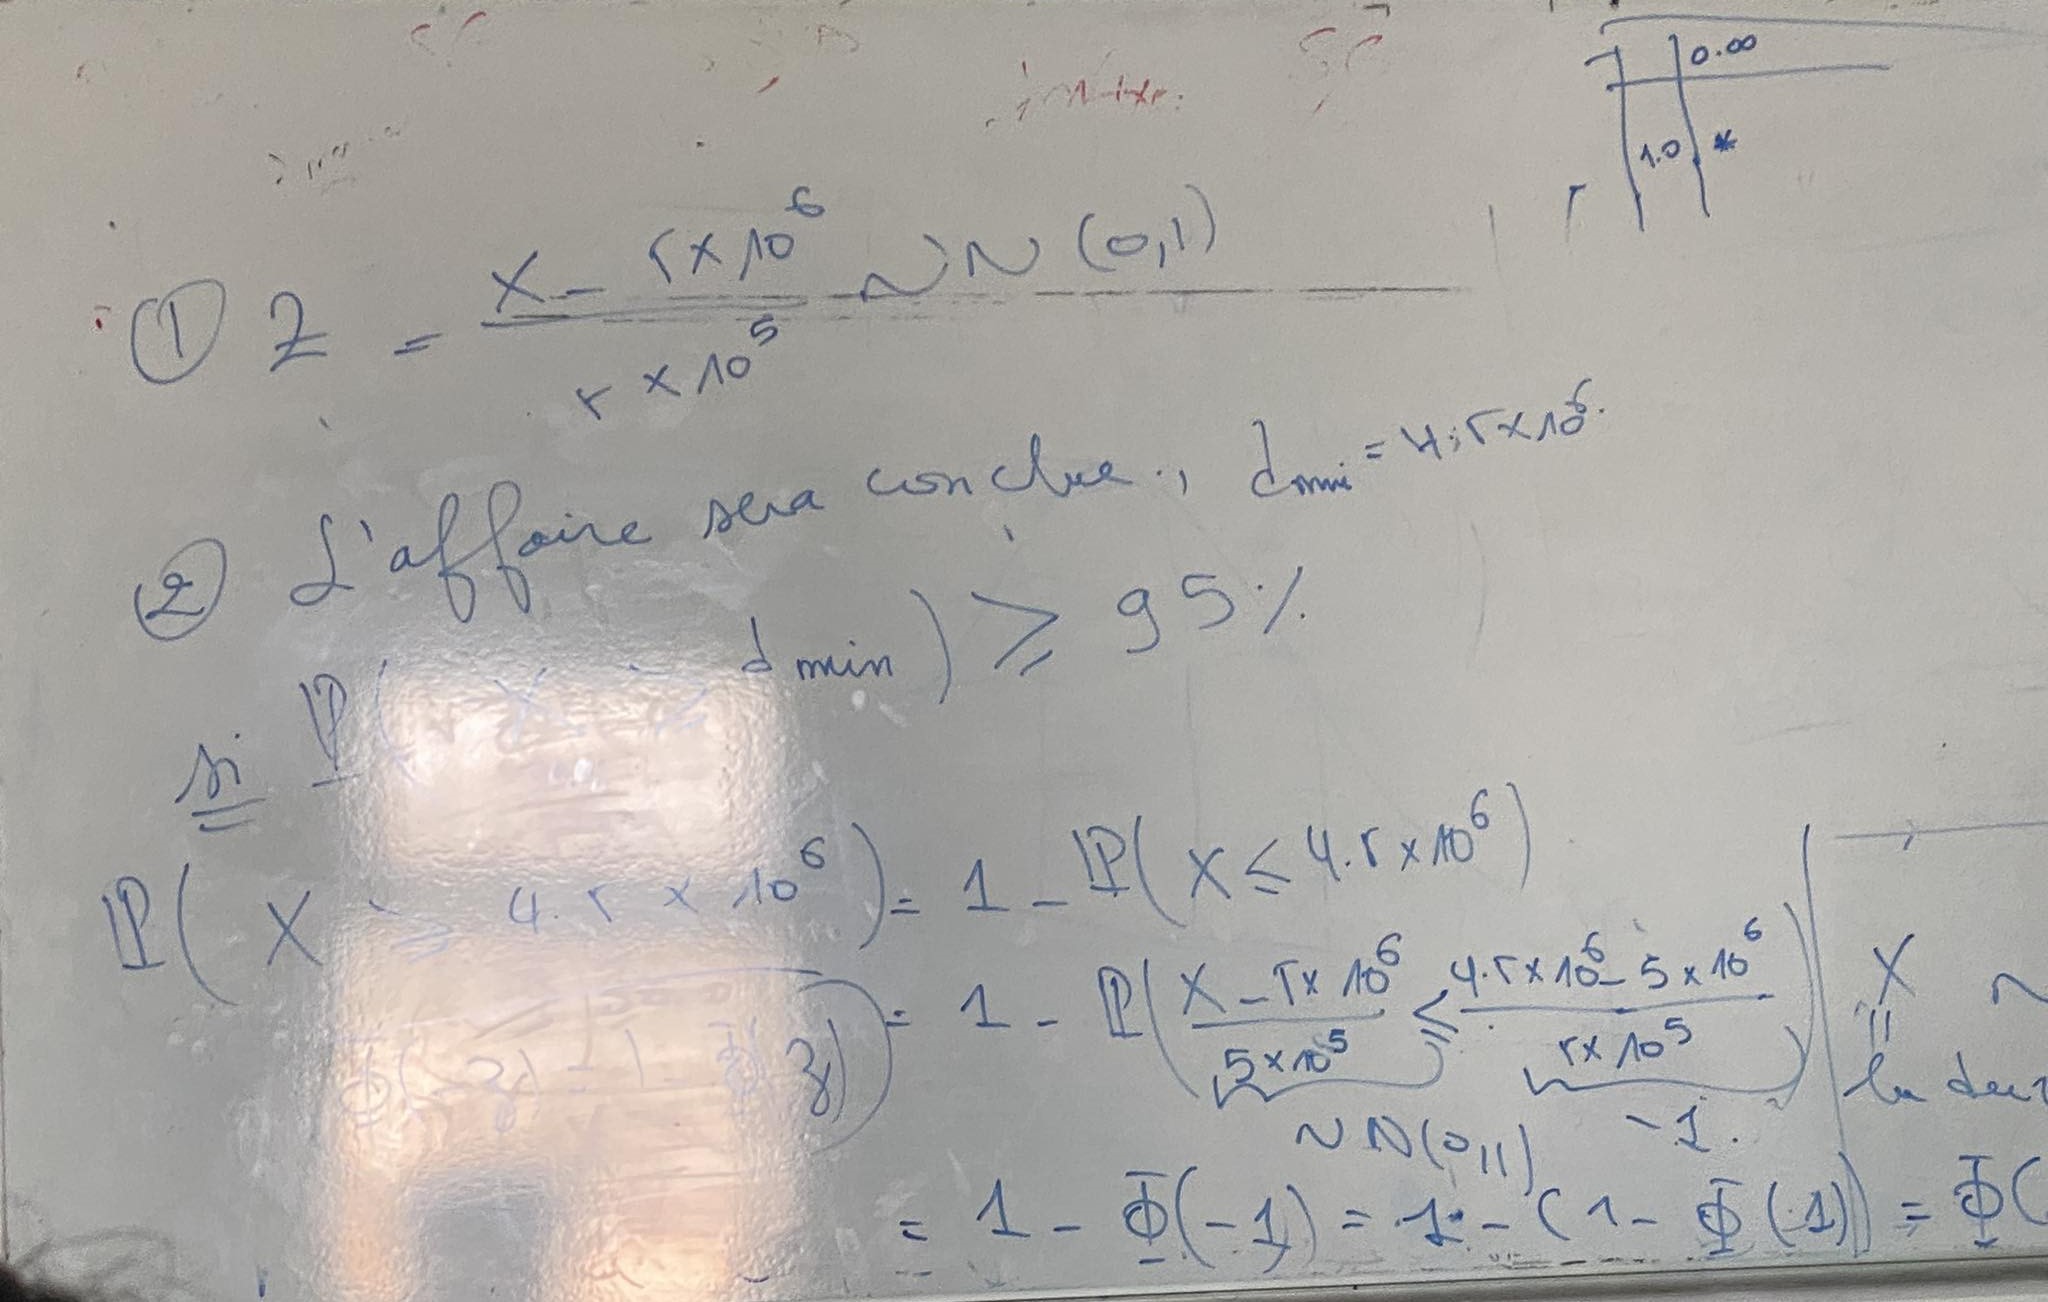 0.00
1.0 *
① Z = (X - 5 × 10⁶) / (5 × 10⁵) ~ N(0,1)
② L'affaire sera conclue, dmin = 4,5 × 10⁶.
si ℙ(X ≥ dmin) ≥ 95%
ℙ(X ≥ 4.5 × 10⁶) = 1 - ℙ(X ≤ 4.5 × 10⁶)
Φ(-z) = 1 - Φ(z)
= 1 - ℙ((X - 5 × 10⁶) / (5 × 10⁵) ≤ (4.5 × 10⁶ - 5 × 10⁶) / (5 × 10⁵))
~ N(0,1) -1.
= 1 - Φ(-1) = 1 - (1 - Φ(1)) = Φ(
X ~
||
la